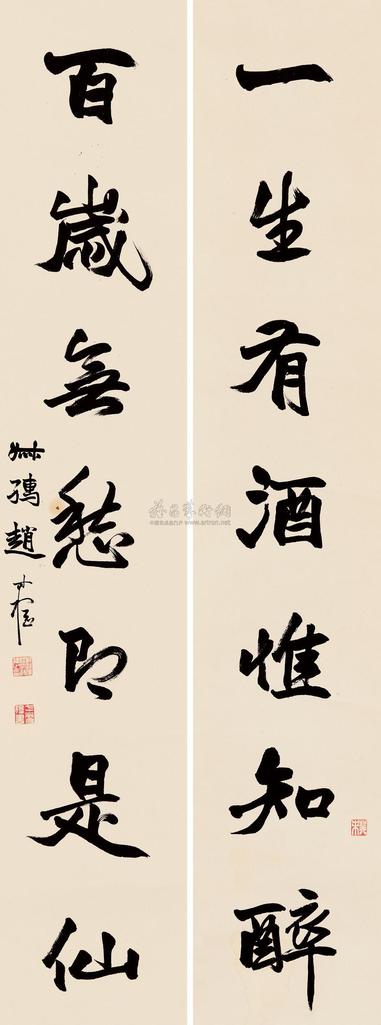 一生有酒惟知醉
百歲無愁即是仙
叔孺趙時棡
雅昌艺术网
www.artron.net